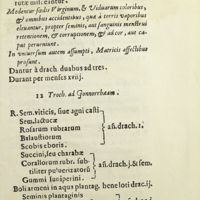 Medentur foedis Virginum, & Viduarum coloribus,
& omnibus accidentibus, quæ à terris vaporibus
eleuantur, propter seminis, aut sanguinis menstrui
retentionem, & corruptionem, & ad cor, aut ca
put perueniunt.
In vniuersum autem assumpti, Matricis affectibus
prosunt.
Dantur à drach. duabus ad tres.
Durant per menses xxiij.
12 Troch. ad Gonnorrhæam.
R. Sem. viticis, siue agni casti
Sem. lactucæ
Rosarum rubrarum
Balaustiorum
Scobis eboris.
añ. drach. 1.
Succini, seu charabe
Corallorum rubr. sub-
tiliter puluerizatorũ
Gummi iuniperini.
añ. drach. j. & sem.
Boli armeni in aqua plantag. bene loti drac. ij.
Seminis plantaginis